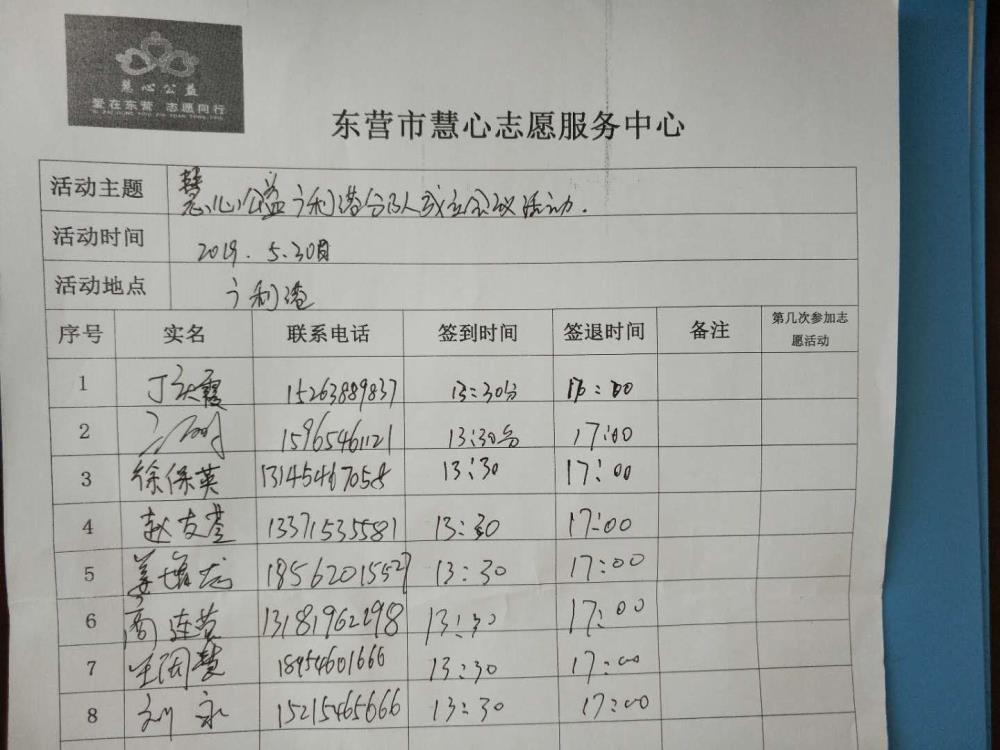 慧心公益
爱在东营 志愿同行
东营市慧心志愿服务中心
活动主题 慧心公益广利港分队成立会议活动.
活动时间 2019. 5.30日
活动地点 广利港
序号 实名 联系电话 签到时间 签退时间 备注 第几次参加志愿活动
1 丁秋霞 15263889837 13:30分 17:00
2 15965461121 13:30分 17:00
3 徐保英 13145467058 13:30 17:00
4 赵友 13371535581 13:30 17:00
5 姜增龙 18562015527 13:30 17:00
6 商连营 13181962298 13:30 17:00
7 慧 18954601666 13:30 17:00
8 刘永 15215465666 13:30 17:00